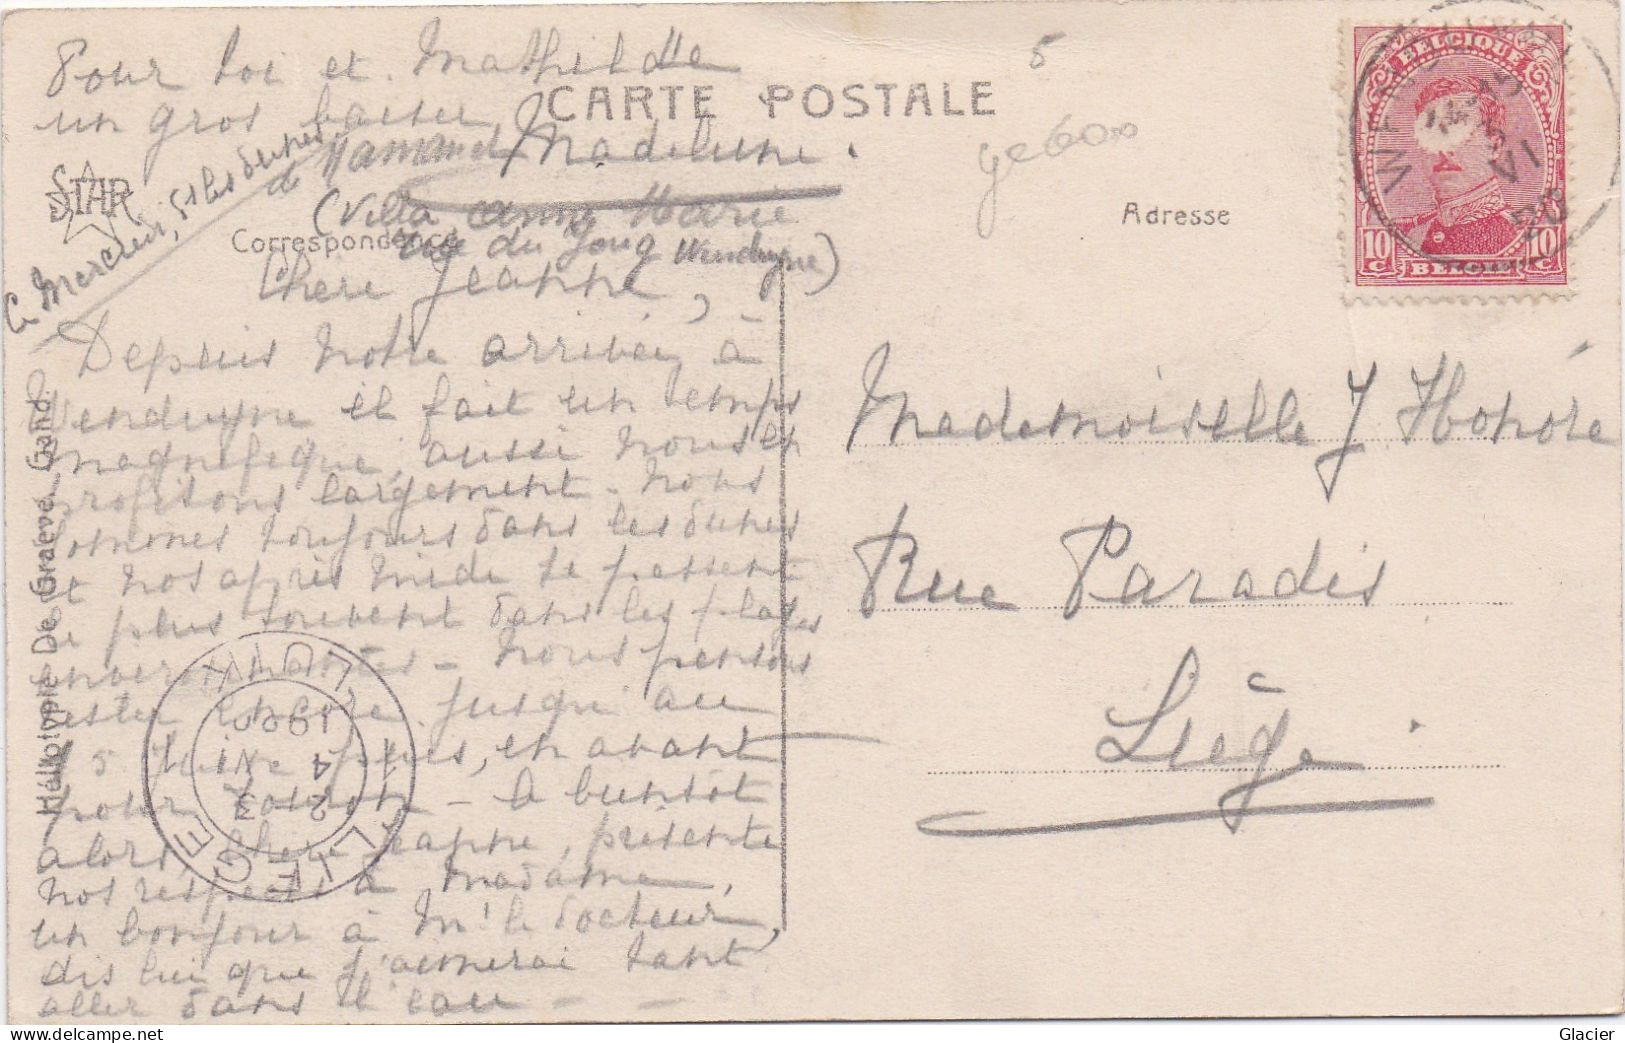 Pour toi et Mathilde
un gros baiser
de Maman et Madeleine.
CARTE POSTALE
5
STAR
(Villa Anne Marie
Rue du Wenduyne)
Correspondance
Adresse
Chère Jeanne,
Depuis notre arrivée à
Wenduyne il fait un temps
magnifique, aussi nous en
profitons largement. Nous
sommes toujours dans les dunes
et nos après midi se passent
le plus souvent dans les plages
environnantes - Nous pensons
rester encore jusqu'au
15 puis, en avant
pour - A bientôt
alors, chère Jeanne, présente
nos respects à Madame,
un bonjour à Mr le docteur,
dis lui que j'aimerai tant
aller dans l'eau - -
Héliotypie De Graeve, Gand.
BELGIQUE
10 C BELGIE 10 C
VI
20
Mademoiselle J Honoré
Rue Paradis
Liège.
LIEGE
LUIK
23
4 VI
1920
Glacier